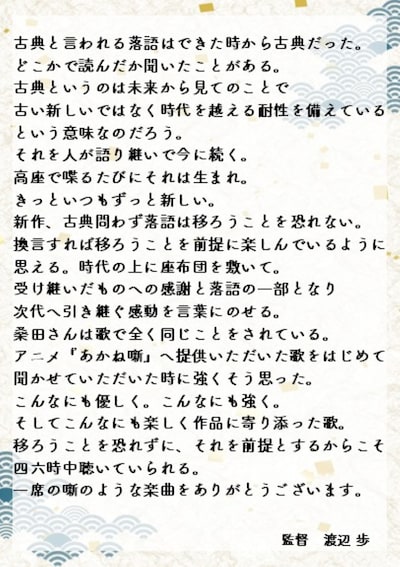 古典と言われる落語はできた時から古典だった。
どこかで読んだか聞いたことがある。
古典というのは未来から見てのことで
古い新しいではなく時代を越える耐性を備えている
という意味なのだろう。
それを人が語り継いで今に続く。
高座で喋るたびにそれは生まれ。
きっといつもずっと新しい。
新作、古典問わず落語は移ろうことを恐れない。
換言すれば移ろうことを前提に楽しんでいるように
思える。時代の上に座布団を敷いて。
受け継いだものへの感謝と落語の一部となり
次代へ引き継ぐ感動を言葉にのせる。
桑田さんは歌で全く同じことをされている。
アニメ『あかね噺』へ提供いただいた歌をはじめて
聞かせていただいた時に強くそう思った。
こんなにも優しく。こんなにも強く。
そしてこんなにも楽しく作品に寄り添った歌。
移ろうことを恐れずに、それを前提とするからこそ
四六時中聴いていられる。
一席の噺のような楽曲をありがとうございます。
監督　渡辺 歩